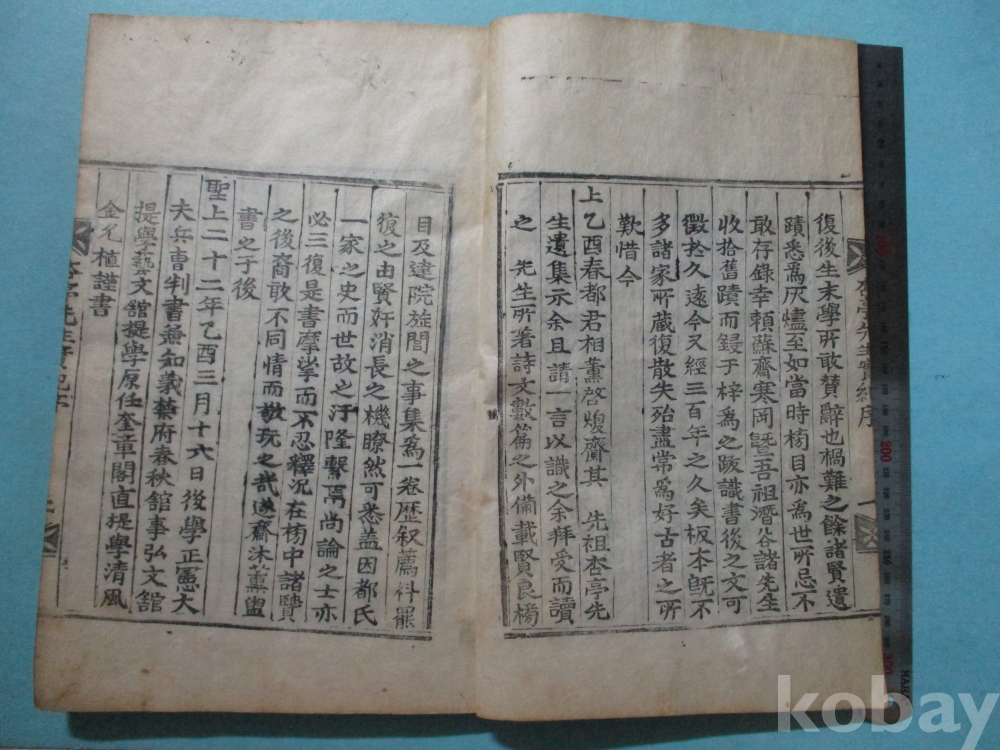 復後生末學所敢贊辭也禍難之餘諸賢遺
蹟悉爲灰燼至如當時榜目亦爲世所忌不
敢存錄幸賴蘇齋寒岡曁吾祖潛谷諸先生
收拾舊蹟而鋟于梓爲之跋識書後之文可
徵於久遠今又經三百年之久矣板本旣不
多諸家所藏復散失殆盡常爲好古者之所
歎惜今
上乙酉春都君相薰啓煥齋其 先祖杏亭先
生遺集示余且請一言以識之余拜受而讀
之 先生所著詩文數篇之外備載賢良榜
目及建院旋閭之事集爲一卷歷叙薦科罷
復之由賢奸消長之機瞭然可悉盖因都氏
一家之史而世故之汙隆繫焉尚論之士亦
必三復是書摩挲而不忍釋況在榜中諸賢
之後裔敢不同情而敬玩之哉遂齋沐薰盥
書之于後
聖上二十二年乙酉三月十六日後學正憲大
夫兵曹判書兼知義禁府春秋館事弘文館
提學藝文館提學原任奎章閣直提學清風
金允植謹書
杏亭先生實紀序
kobay